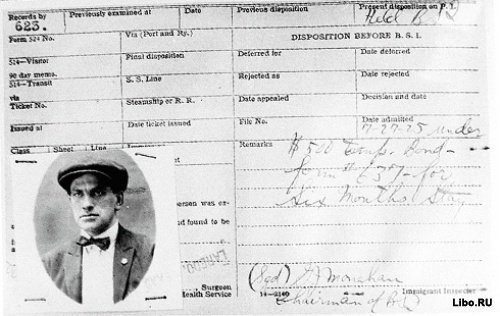 Records by
623.
Previously examined at
Date
Previous disposition
Present disposition on P. I.
Held B.S.I.
Form 524 No.
Via (Port and Ry.)
DISPOSITION BEFORE B. S. I.
524—Visitor
Final disposition
Deferred for
Date deferred
90 day memo.
514—Transit
S. S. Line
Rejected as
Date rejected
via
Ticket No.
Steamship or R. R.
Date appealed
Decision and date
Issued at
Date ticket issued
File No.
Date admitted
7-27-25 under
Class
Sheet
Line
Remarks
$500 Temp. Bond—
form # 637—for
six months stay
person was ex-
found to be
LAREDO,
Surgeon
Health Service
14—2140
(Sgd) Monahan
Immigrant Inspector
Chairman of
Libo.RU